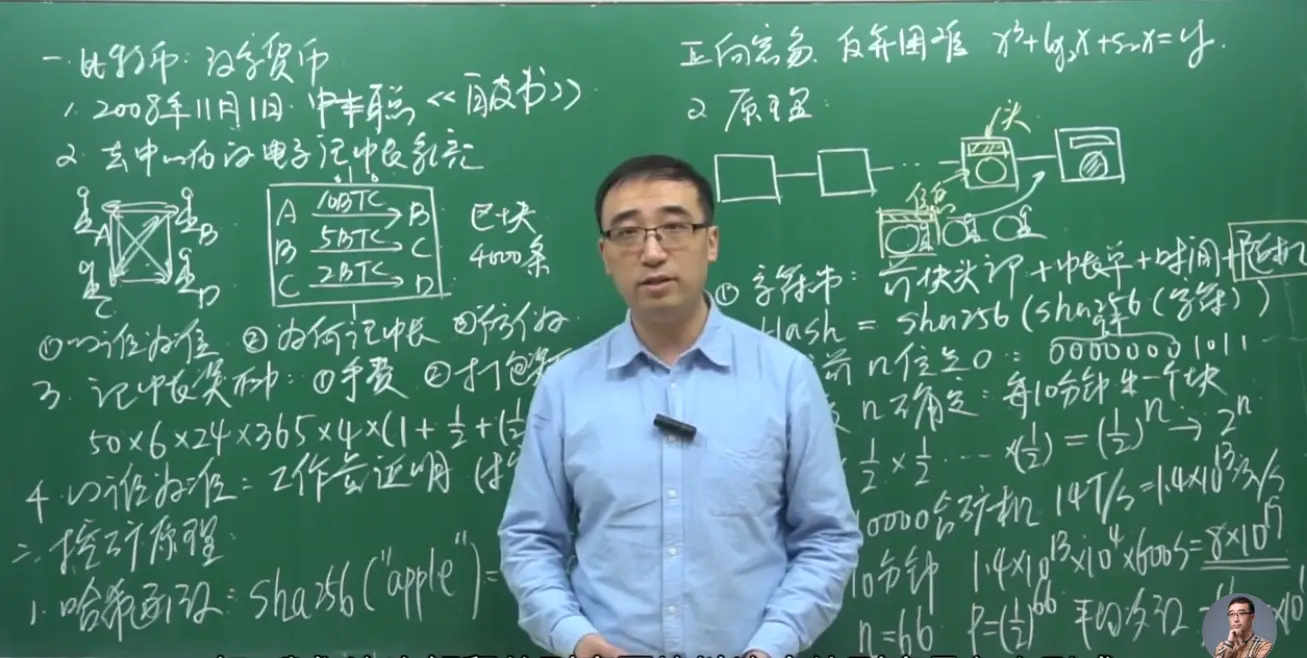 一.比特币:数字货币
1.2008年11月1日.中本聪《白皮书》
2.去中心化的电子记账系统
A
B
C
D
A 10BTC B
B 5BTC C
C 2BTC D
区块
4000条
①以谁为准 ②为何记账 ③防伪
3.记账奖励:①手续费 ②打包奖
50×6×24×365×4×(1+1/2+(1/2
4.以谁为准:工作量证明(挖
二.挖矿原理
1.哈希函数:sha256("apple")=
正向容易,反算困难 x³+lg₂x+5x=y.
2.原理:
头
①字符串:前块头部+账单+时间+随机
Hash = sha256(sha256(字符))
前n位是0:
00000001011
n不确定:每10分钟生一个块
1/2×1/2……×(1/2)=(1/2)ⁿ→2ⁿ
10000台矿机 14T/s=1.4×10¹³次/s
10分钟 1.4×10¹³×10⁴×600s=8×10¹⁹
n=66 P=(1/2)⁶⁶ 平均次数=